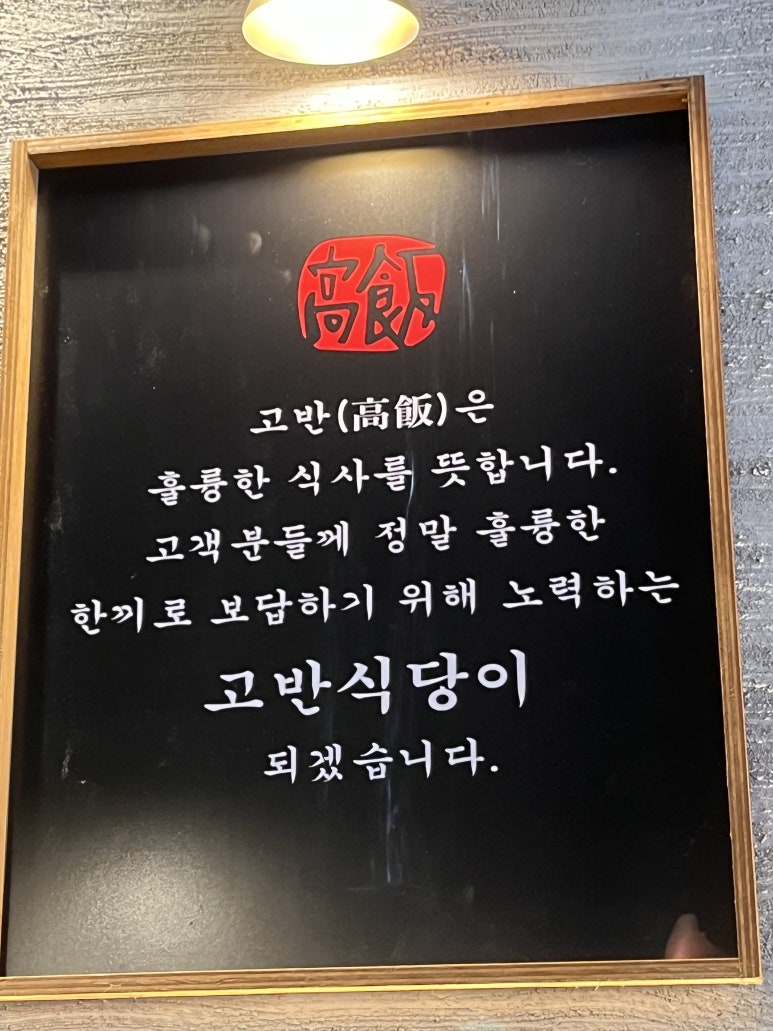 高飯
고반(高飯)은
훌륭한 식사를 뜻합니다.
고객분들께 정말 훌륭한
한끼로 보답하기 위해 노력하는
고반식당이
되겠습니다.